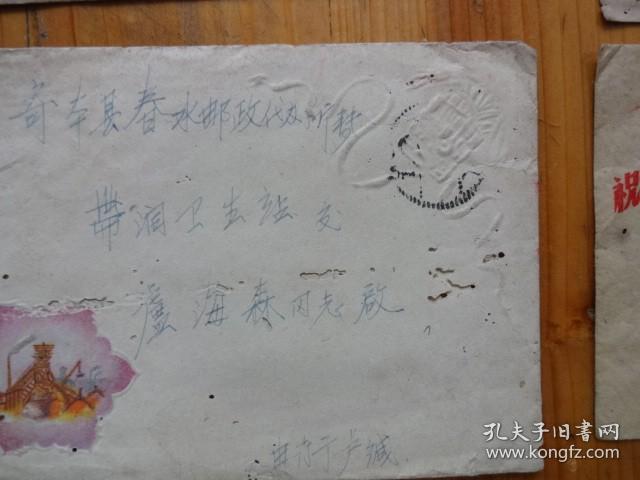 寄本县春水邮政代办所转
带洞卫生站交
卢海森同志启
祝
孔夫子旧书网
www.kongfz.com